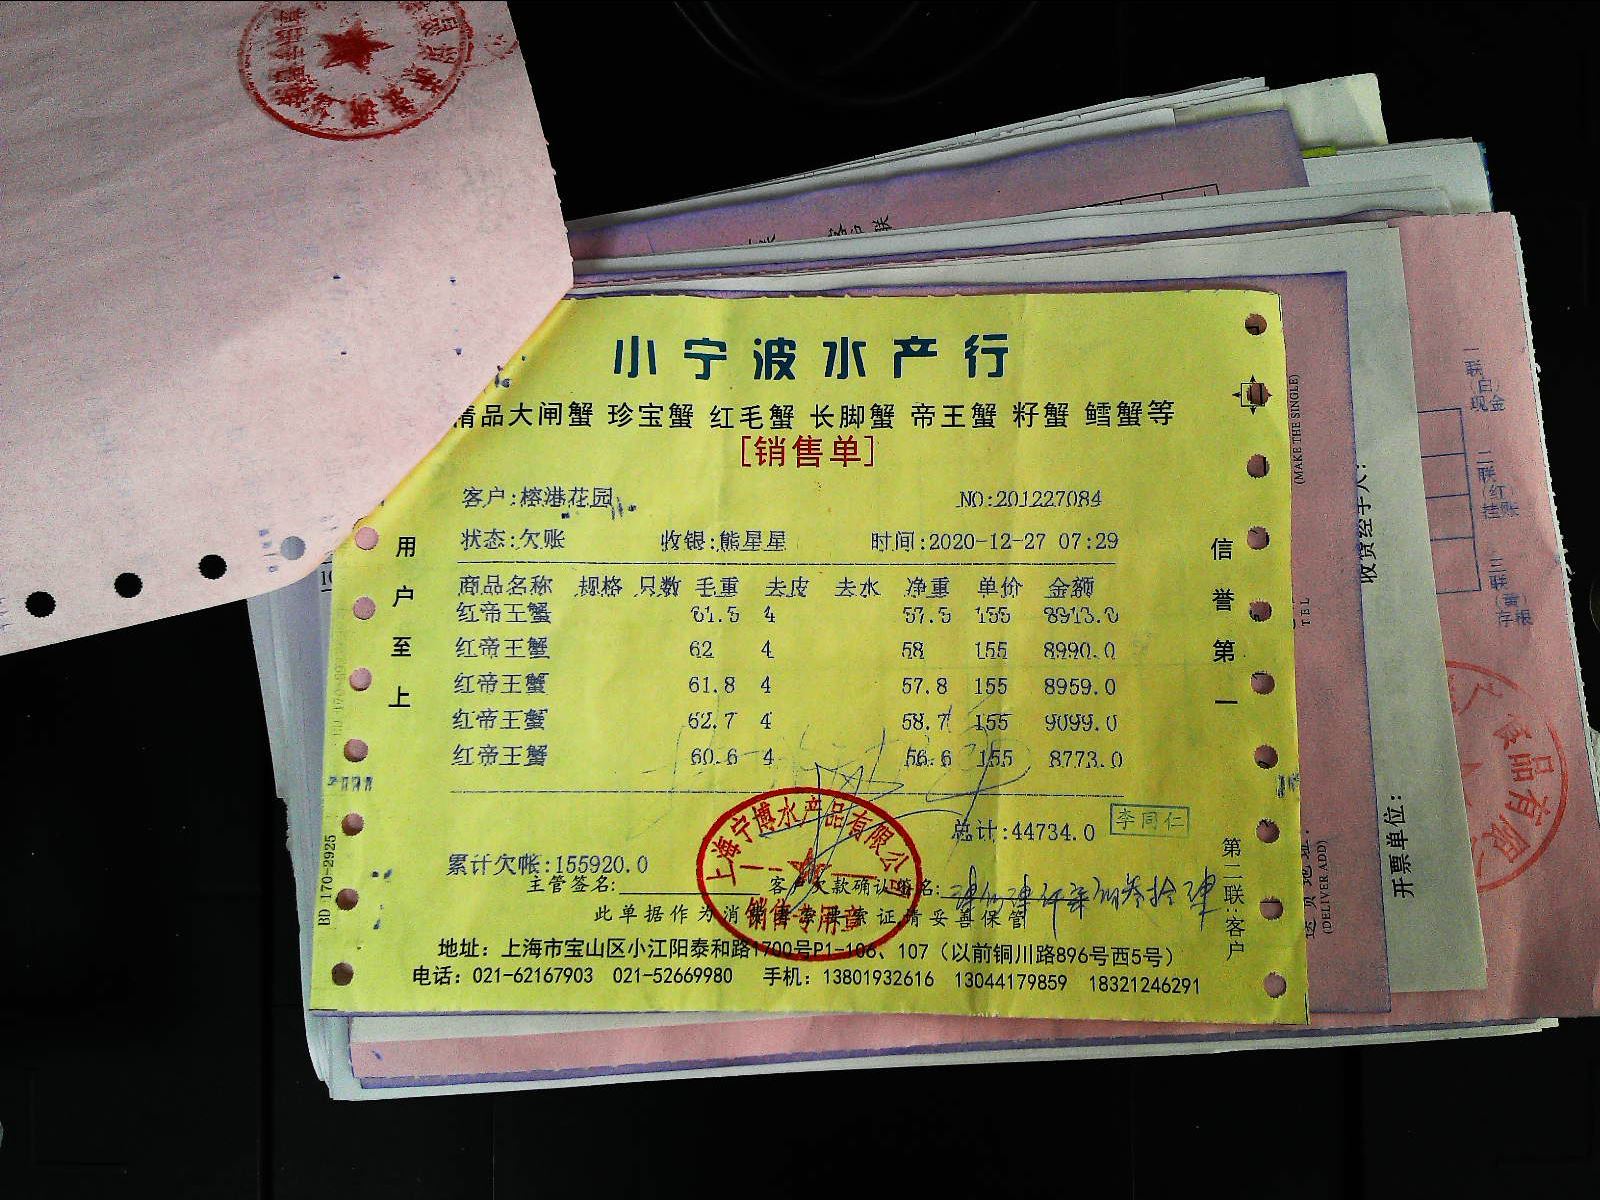 小宁波水产行
精品大闸蟹 珍宝蟹 红毛蟹 长脚蟹 帝王蟹 籽蟹 鳕蟹等
[销售单]
客户:榕港花园 NO:201227084
状态:欠账 收银:熊星星 时间:2020-12-27 07:29
商品名称 规格 只数 毛重 去皮 去水 净重 单价 金额
红帝王蟹 61.5 4 57.5 155 8913.0
红帝王蟹 62 4 58 155 8990.0
红帝王蟹 61.8 4 57.8 155 8959.0
红帝王蟹 62.7 4 58.7 155 9099.0
红帝王蟹 60.6 4 56.6 155 8773.0
总计:44734.0 李同仁
累计欠帐:155920.0
主管签名: 客户欠款确认签名:
此单据作为消 索证请妥善保管
地址：上海市宝山区小江阳泰和路1700号P1-106、107（以前铜川路896号西5号）
电话：021-62167903 021-52669980 手机：13801932616 13044179859 18321246291
用户至上
信誉第一
第二联:客户
BD 170-2925
上海宁博水产品有限公司
销售专用章
(MAKE THE SINGLE)
TEL
(DELIVER ADD)
收货经手人：
开票单位：
一联(白)现金
二联(红)挂账
三联(黄)存根
品有限